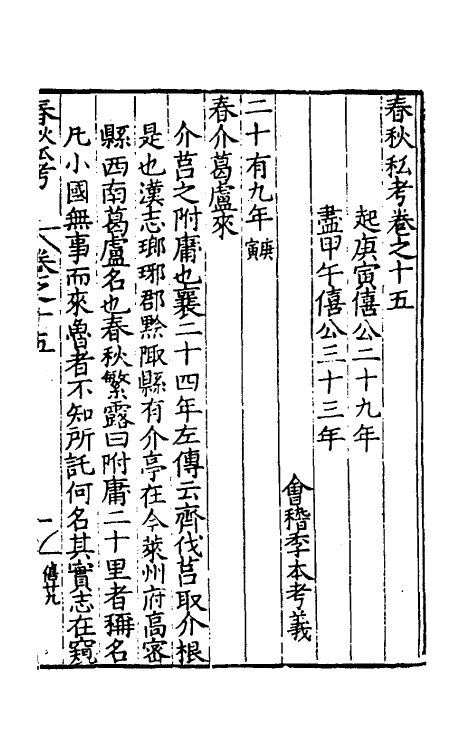 春秋私考卷之十五
起庚寅僖公二十九年
盡甲午僖公三十三年
會稽季本考義
二十有九年庚寅
春介葛盧來
介莒之附庸也襄二十四年左傳云齊伐莒取介根
是也漢志瑯琊郡黔陬縣有介亭在今萊州府高密
縣西南葛盧名也春秋繁露曰附庸二十里者稱名
凡小國無事而來魯者不知所託何名其實志在窺
春秋私考 卷之十五 一 僖廿九